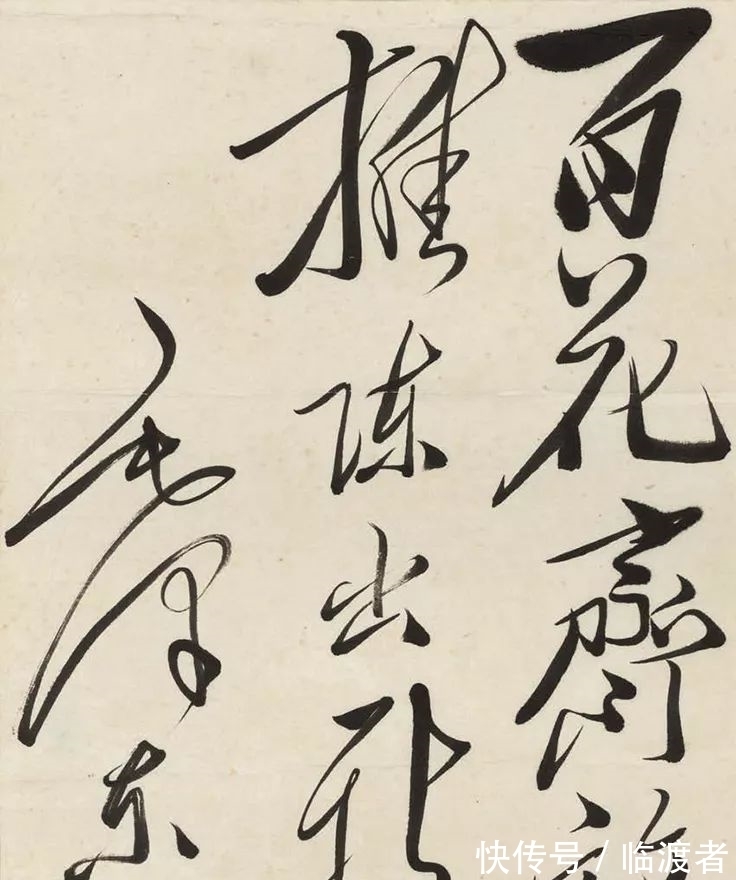 百花齊放
推陳出新
毛澤东
快传号/临渡者